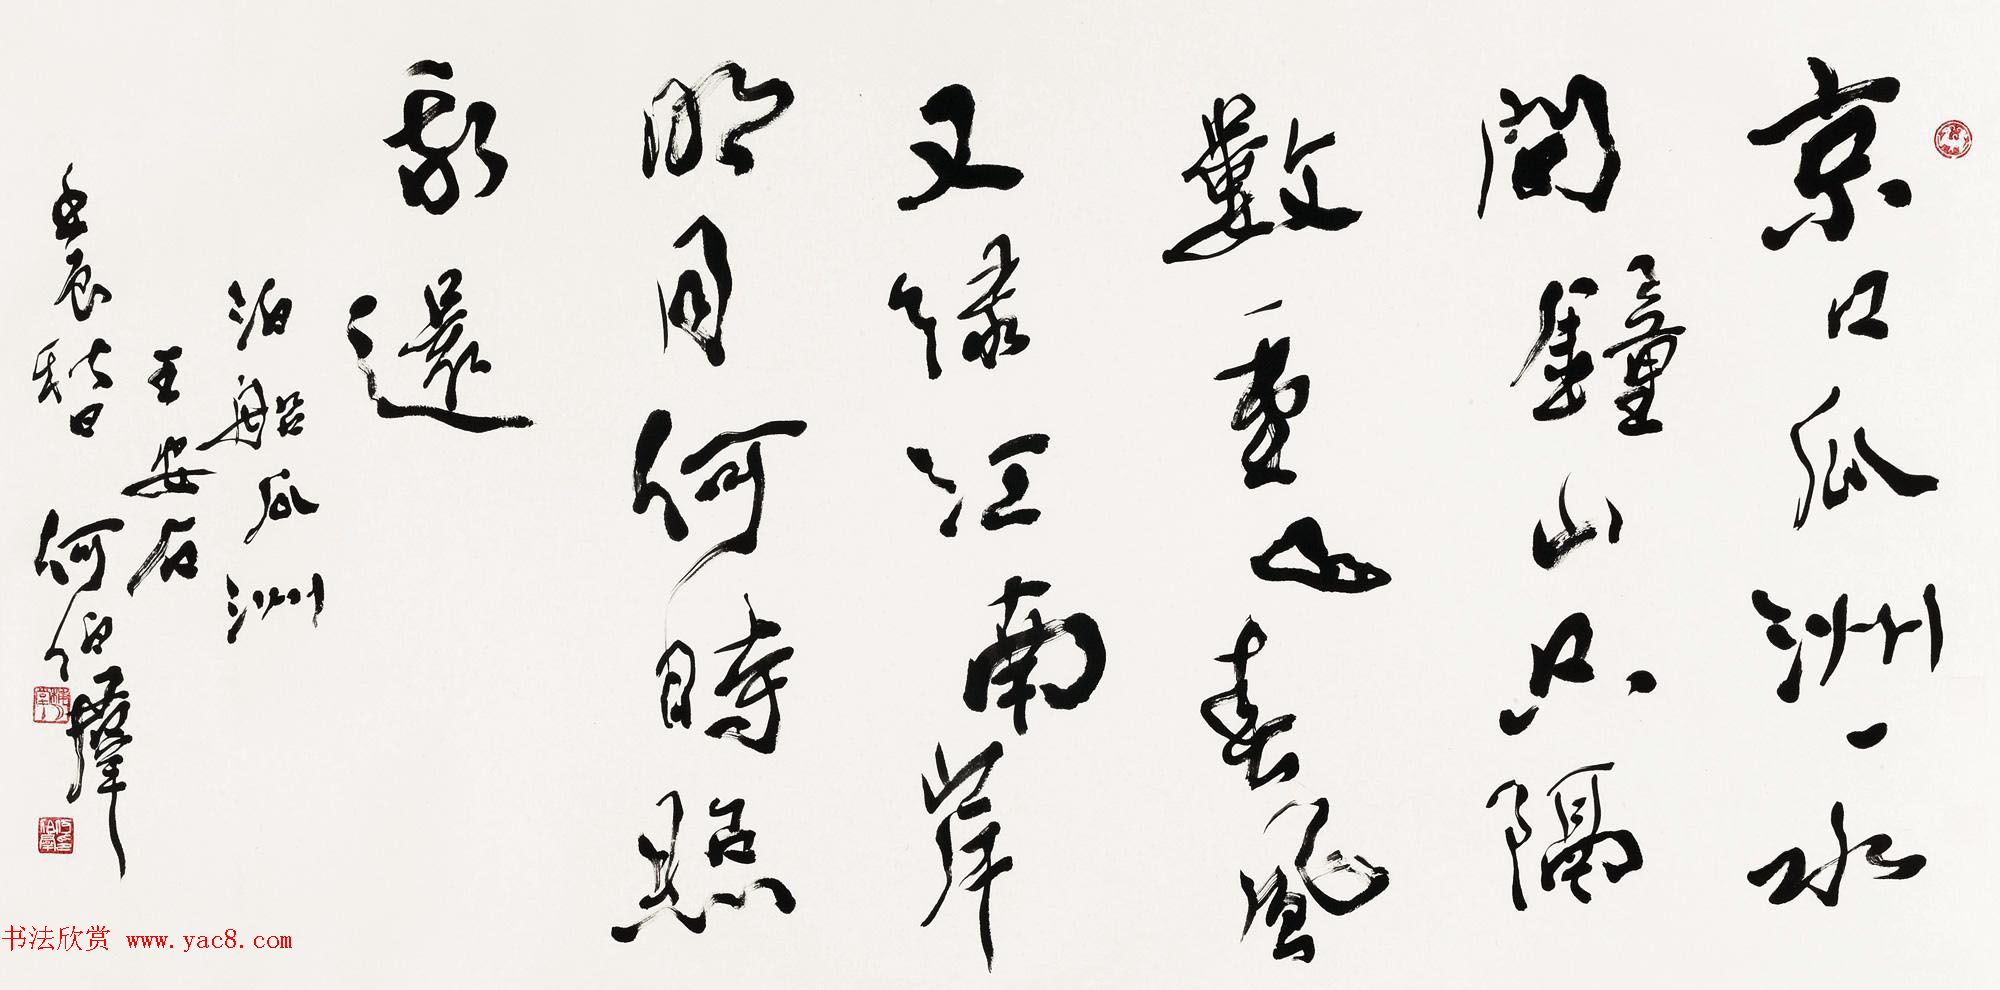 京口瓜洲一水
間鐘山只隔
數重山春風
又綠江南岸
明月何時照
我還
泊船瓜洲
王安石
壬辰秋日何伯群
书法欣赏 www.yac8.com